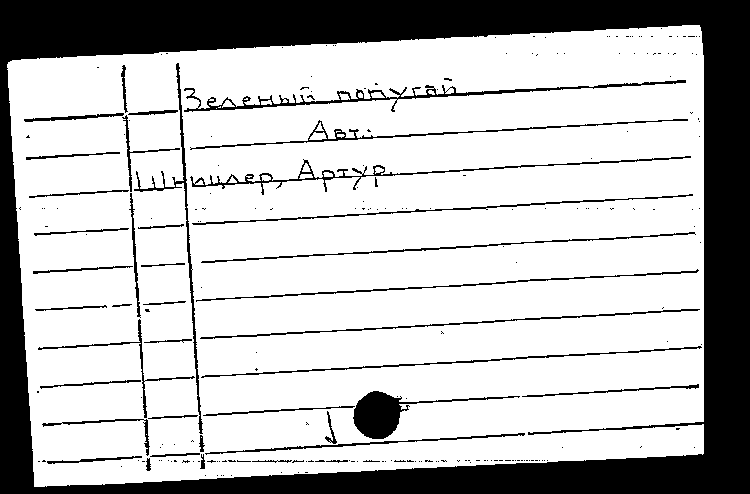 Зеленый попугай
Авт.:
Шницлер, Артур.